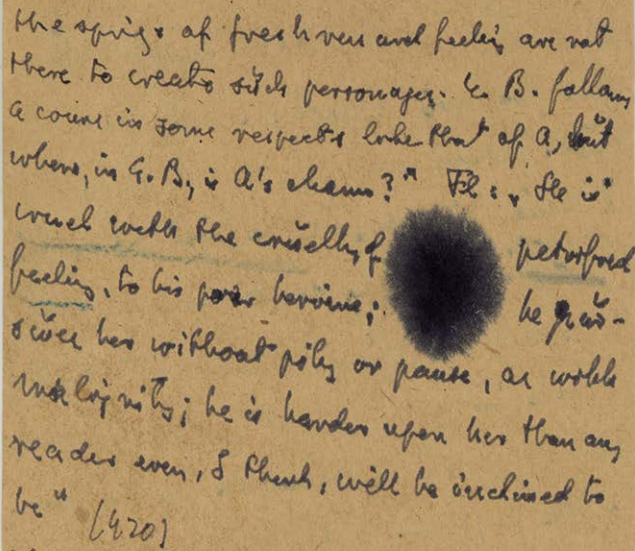 the springs of freshness and feeling are not
there to create such personages. E. B. follows
a course in some respects like that of A, but
where, in E. B., is A's charm?" Fl: „He is
cruel with the cruelty of petrified
feeling, to his poor heroine; he pur-
sues her without pity or pause, as with
malignity; he is harder upon her than any
reader even, I think, will be inclined to
be" (420)